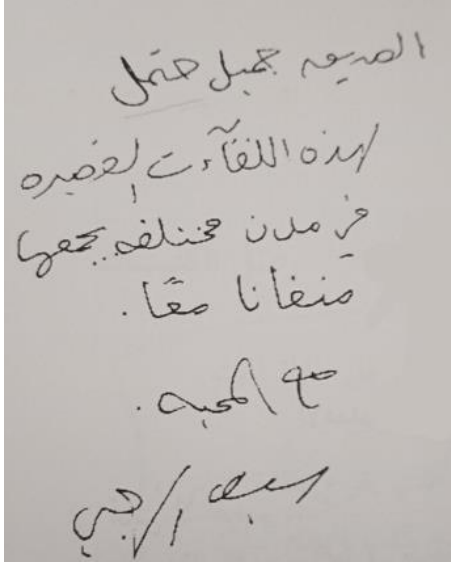 الصديق جميل حتمل
لهذه اللقاءات القصيره
في مدن مختلفه.. يجمعها
منفانا معًا.
مع المحبه.